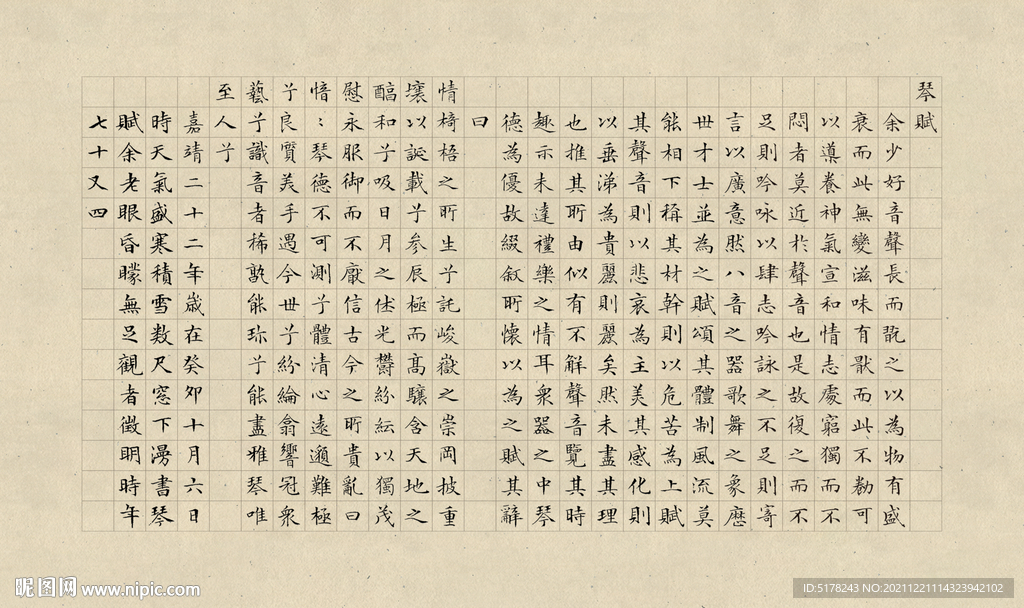 琴賦
余少好音聲長而翫之以為物有盛
衰而此無變滋味有猒而此不勌可
以導養神氣宣和情志處窮獨而不
悶者莫近於聲音也是故復之而不
足則吟咏以肆志吟詠之不足則寄
言以廣意然八音之器歌舞之象歷
世才士並為之賦頌其體制風流莫
能相下稱其材幹則以危苦為上賦
其聲音則以悲哀為主美其感化則
以垂涕為貴麗則麗矣然未盡其理
也推其所由似有不解聲音覽其時
趣亦未達禮樂之情耳衆器之中琴
德為優故綴叙所懷以為之賦其辭
曰
情椅梧之所生兮託峻嶽之崇岡披重
壤以誕載兮參辰極而高驤含天地之
醕和兮吸日月之休光欝紛紜以獨茂
慰永服御而不厭信古今之所貴亂曰
愔〻琴德不可測兮體清心遠邈難極
兮良質美手遇今世兮紛綸翕響冠衆
藝兮識音者稀孰能珍兮能盡雅琴唯
至人兮
嘉靖二十二年歲在癸卯十月六日
時天氣盛寒積雪数尺窓下漫書琴
賦余老眼昏矇無足觀者徵明時年
七十又四
昵图网 www.nipic.com
ID:5178243 NO:20211221114323942102